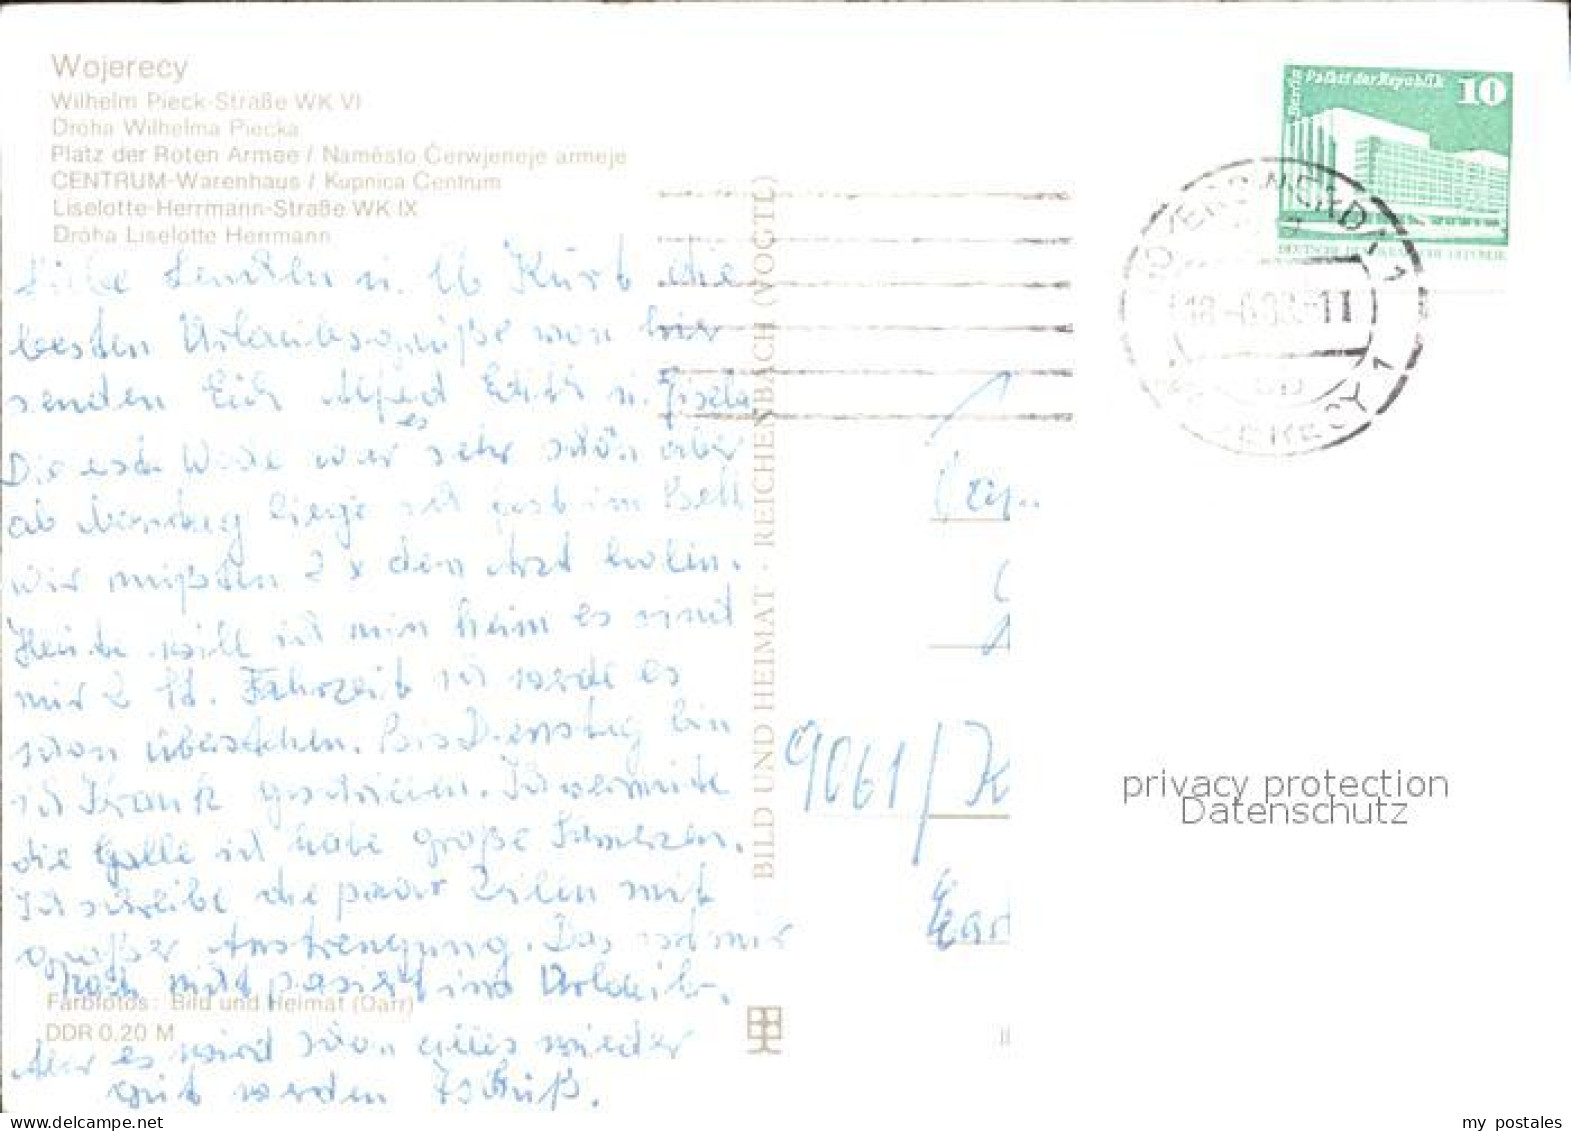 Wojerecy
Wilhelm Pieck-Straße WK VI
Dróha Wilhelma Piecka
Platz der Roten Armee / Naměsto Čerwjeneje armeje
CENTRUM-Warenhaus / Kupnica Centrum
Liselotte-Herrmann-Straße WK IX
Dróha Liselotte Herrmann
Liebe u. Kurt die
besten Urlaubsgrüße von hier
senden Euch Alfred Edith u. Gisela
Die erste Woche war es sehr schön aber
ab liege ich fest im Bett
wir mußten 2 x den Arzt holen.
Heute will ich heim es sind
nur 2 Std. Fahrzeit ich werde es
schon überstehen. Bis Dienstag bin
ich Krank geschrieben. Ich vermute
die Galle ich habe große Schmerzen.
Ich schreibe die paar Zeilen mit
großer Anstrengung. Das ist mir
noch nicht pasiert im Urlaub.
Aber es wird schon alles wieder
gut werden Tschüß.
Farbfotos: Bild und Heimat (Darr)
DDR 0,20 M
BILD UND HEIMAT · REICHENBACH (VOGTL)
Berlin Palast der Republik 10
DEUTSCHE DEMOKRATISCHE REPUBLIK
HOYERSWERDA 1
WOJERECY 1
9061/K
Karl
privacy protection
Datenschutz
www.delcampe.net
my_postales